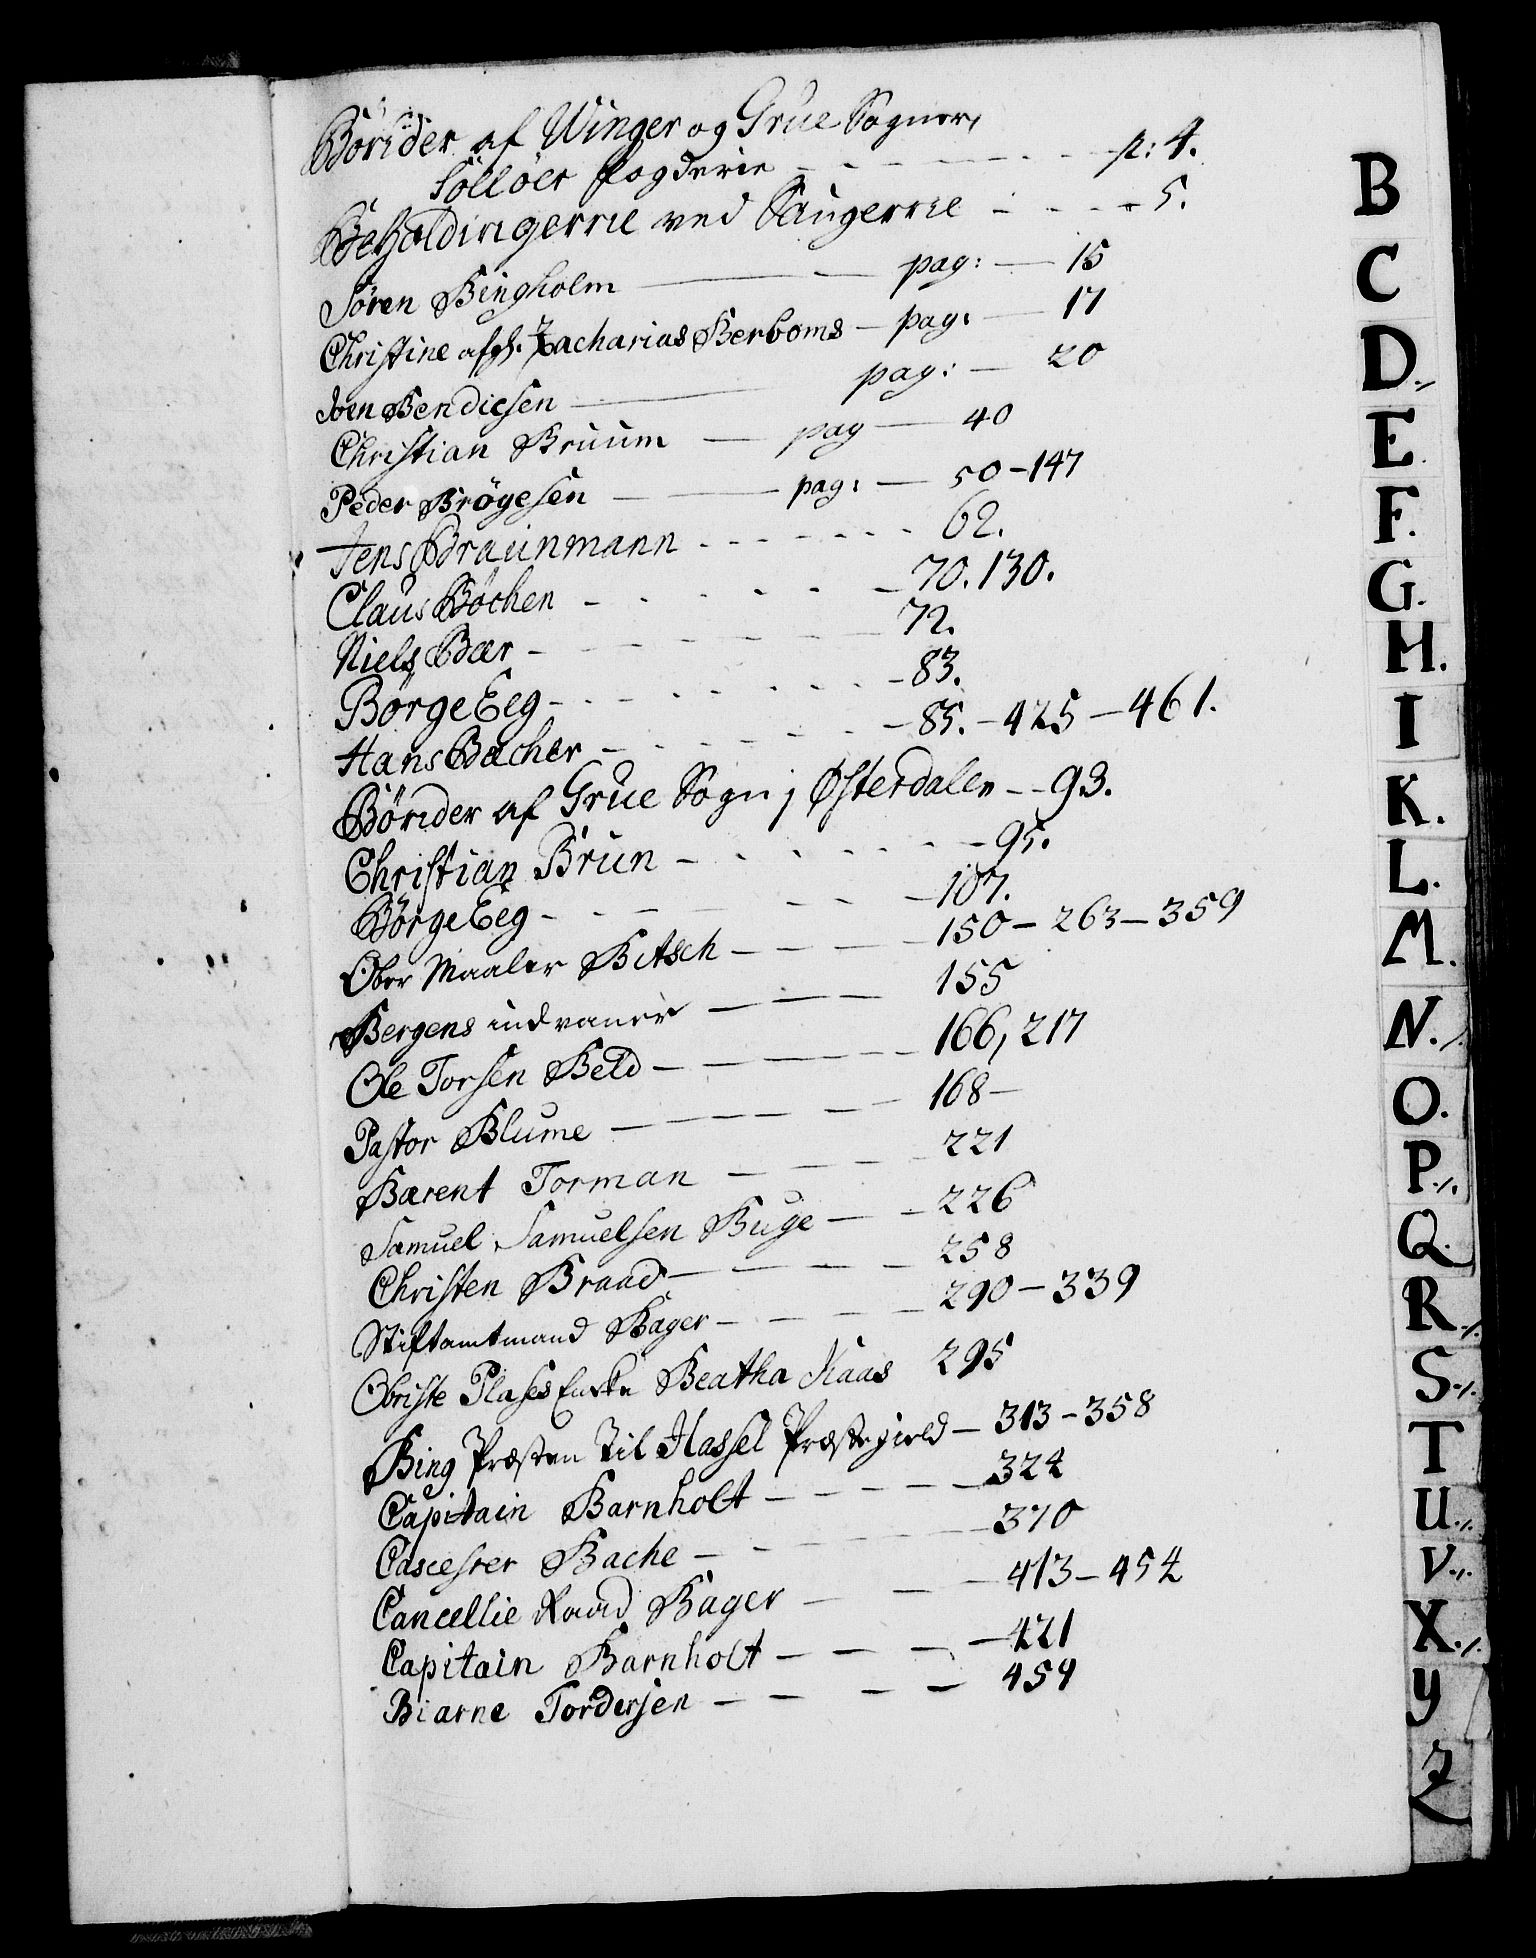 Bønder af Winger og Grue Sogner,
Solløer fogderie - - - - - - p: 4.
Beholdingerne ved Saugerne - - - - 5.
Søren Bingholm — — pag: — 15
Christine afgl. Zacharias Berboms — pag: — 17
Joen Bendicsen — pag: — 20
Christian Bruum — pag — 40
Peder Brøgesen — — pag: — 50 - 147
Jens Braunmann - - - - - - 62.
Claus Bøchen - - - - - - 70. 130.
Niels Bær - - - - - - 72.
Børge Eeg - - - - - - 83.
Hans Bacher - - - - - - 85. - 425 - 461.
Bønder af Grue Sogn j Østerdalen - - 93.
Christian Brun - - - - - - 95.
Børge Eeg - - - - - - 107.
Ober Maaler Bitsch - - - - 150 - 263 - 359
Bergens indvaaner — — — 155
Ole Torsen Beld - - - - - 166, 217
Pastor Blume - - - - - 168 -
Bærent Torman - - - - 221
Samuel Samuelsen Buge - - 226
Christen Braad - - - - 258
Stiftamtmand Bager - - - - 290 - 339
Obriste Plases Encke Beatha Kaas 295
Bing Præsten til Hassel Præstegield - 313 - 358
Capitain Barnholt - - - - - 324
Bache - - - - - 370
Cancellie Raad Bager - - - 413 - 454
Capitain Barnholt - - - - 421
Biarne Tordersen - - - - 459
B
C
D.
E.
F.
G.
H.
I
K.
L.
M.
N.
O.
P.
Q.
R.
S.
T
U.
V.
X.
Y
Z